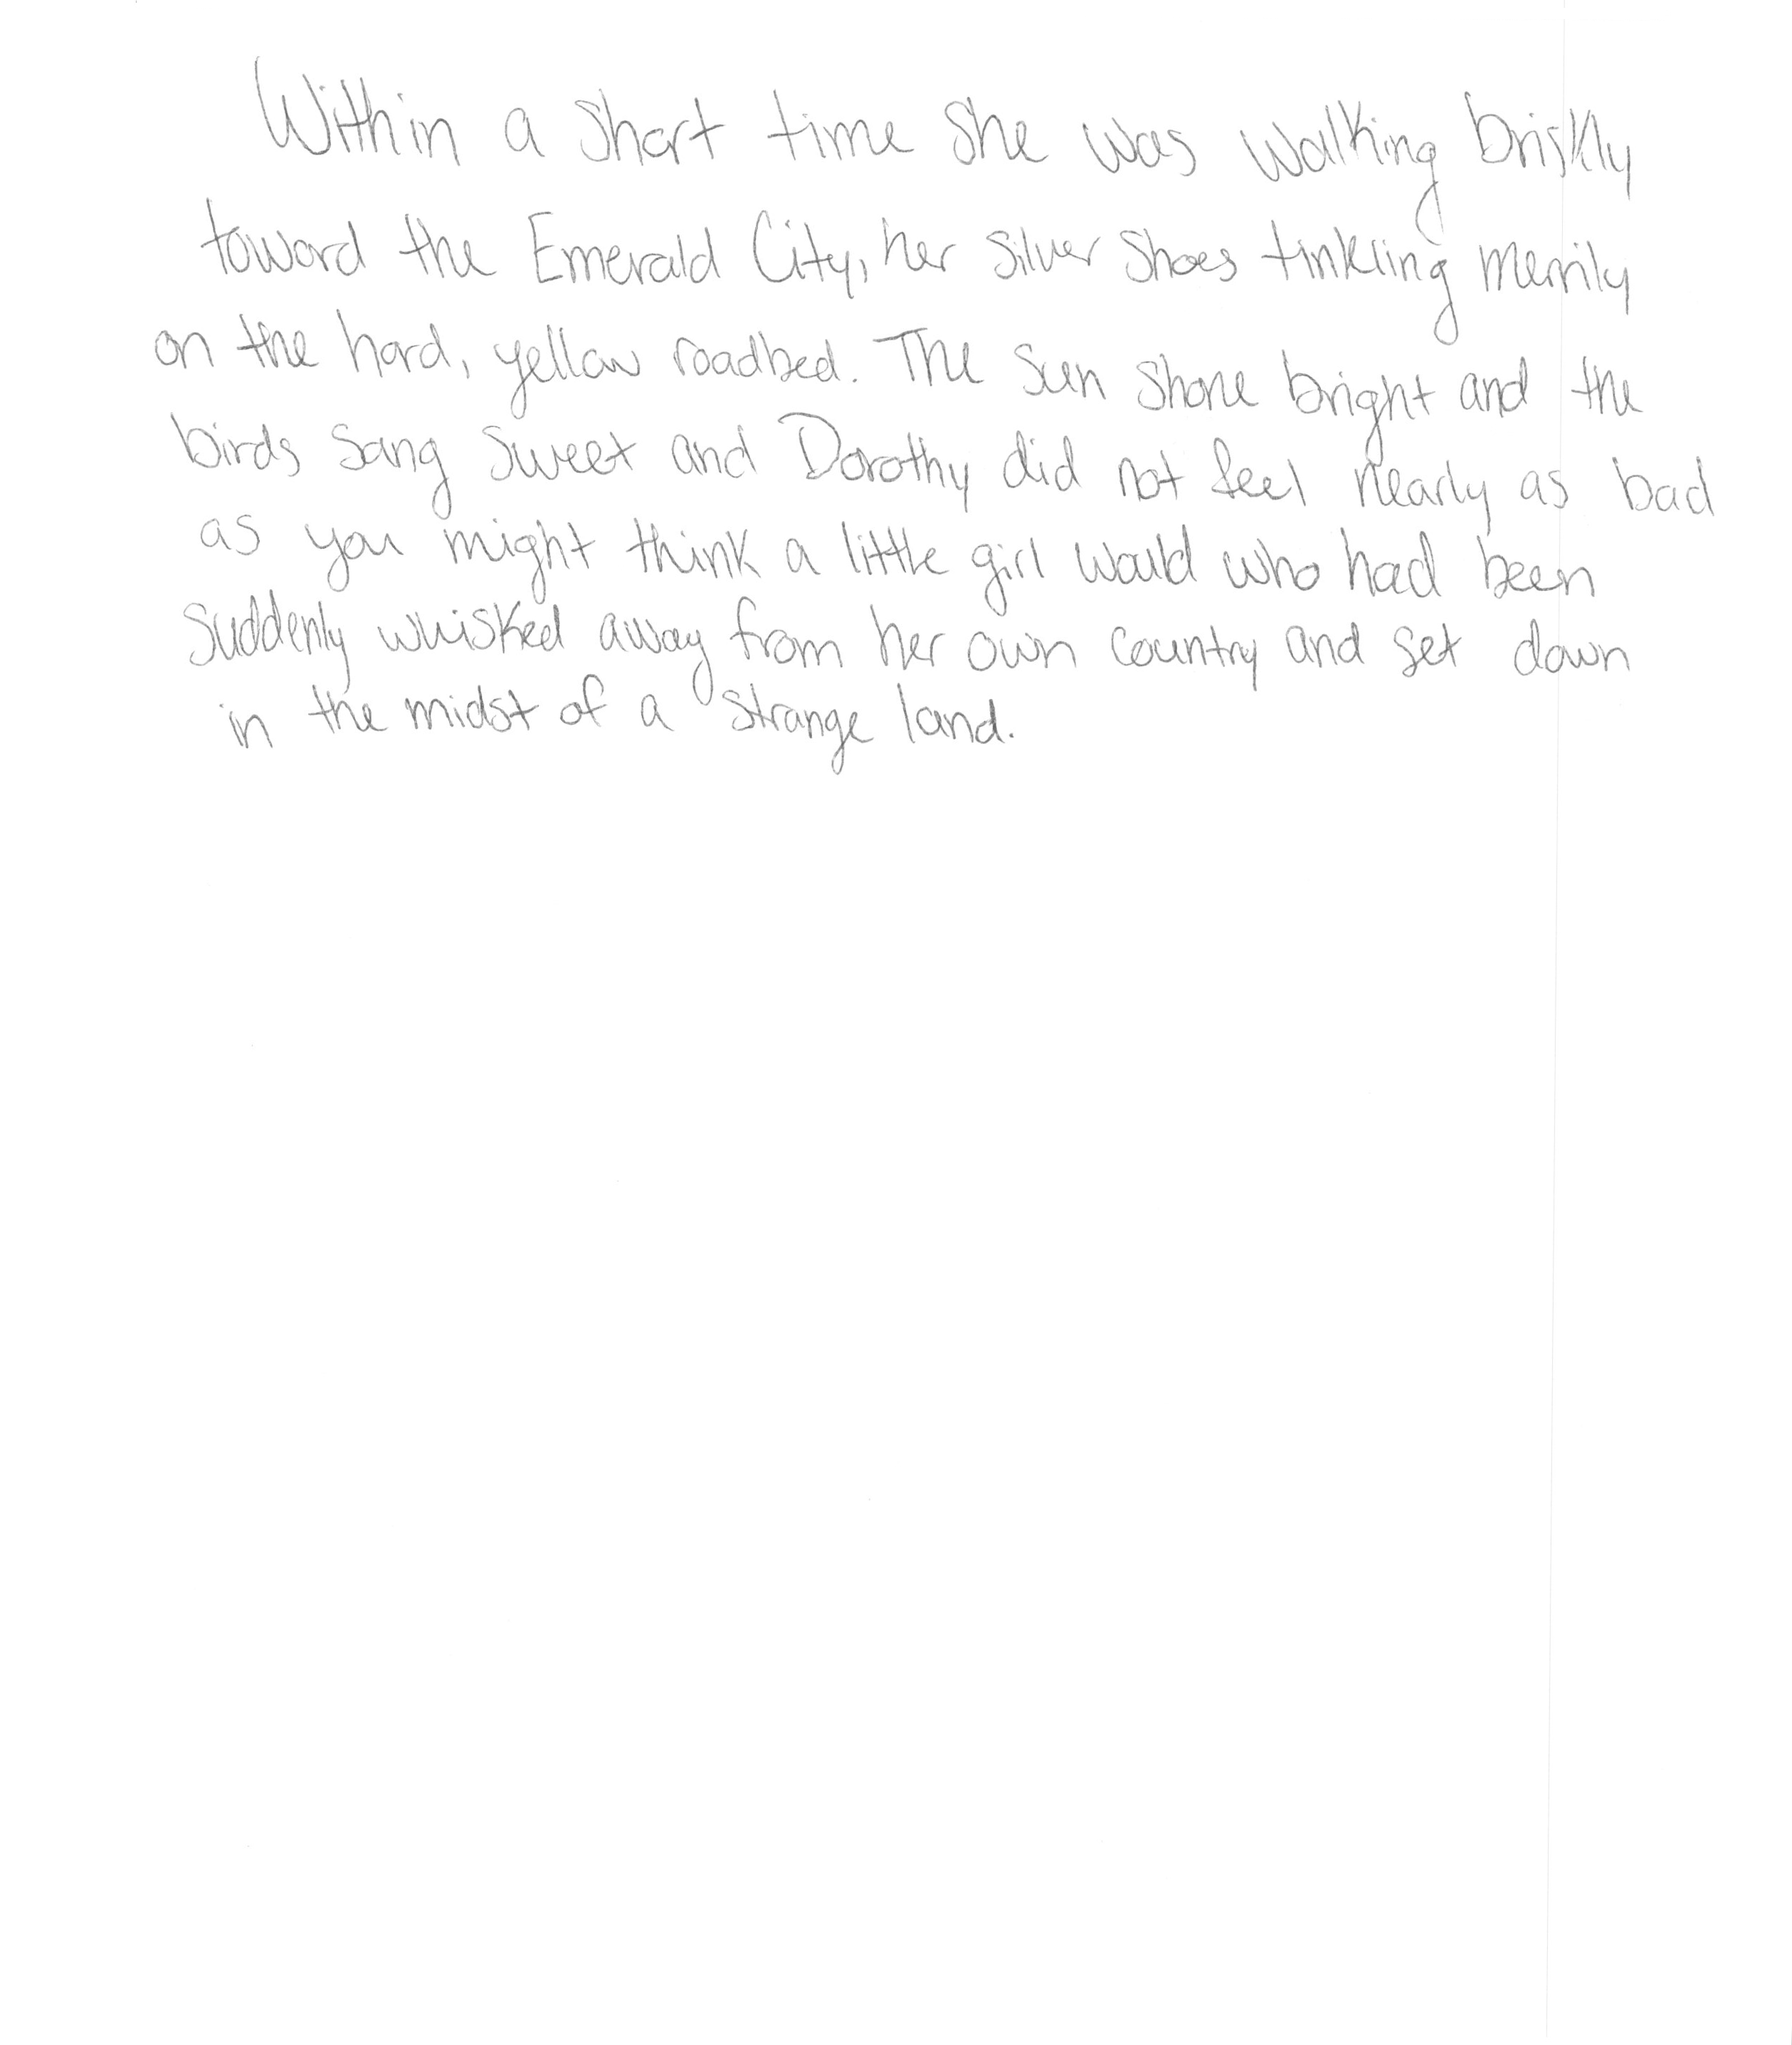 Within a short time she was walking briskly
toward the Emerald City, her silver shoes tinkling merrily
on the hard, yellow roadbed. The sun shone bright and the
birds sang sweet and Dorothy did not feel nearly as bad
as you might think a little girl would who had been
suddenly whisked away from her own country and set down
in the midst of a strange land.